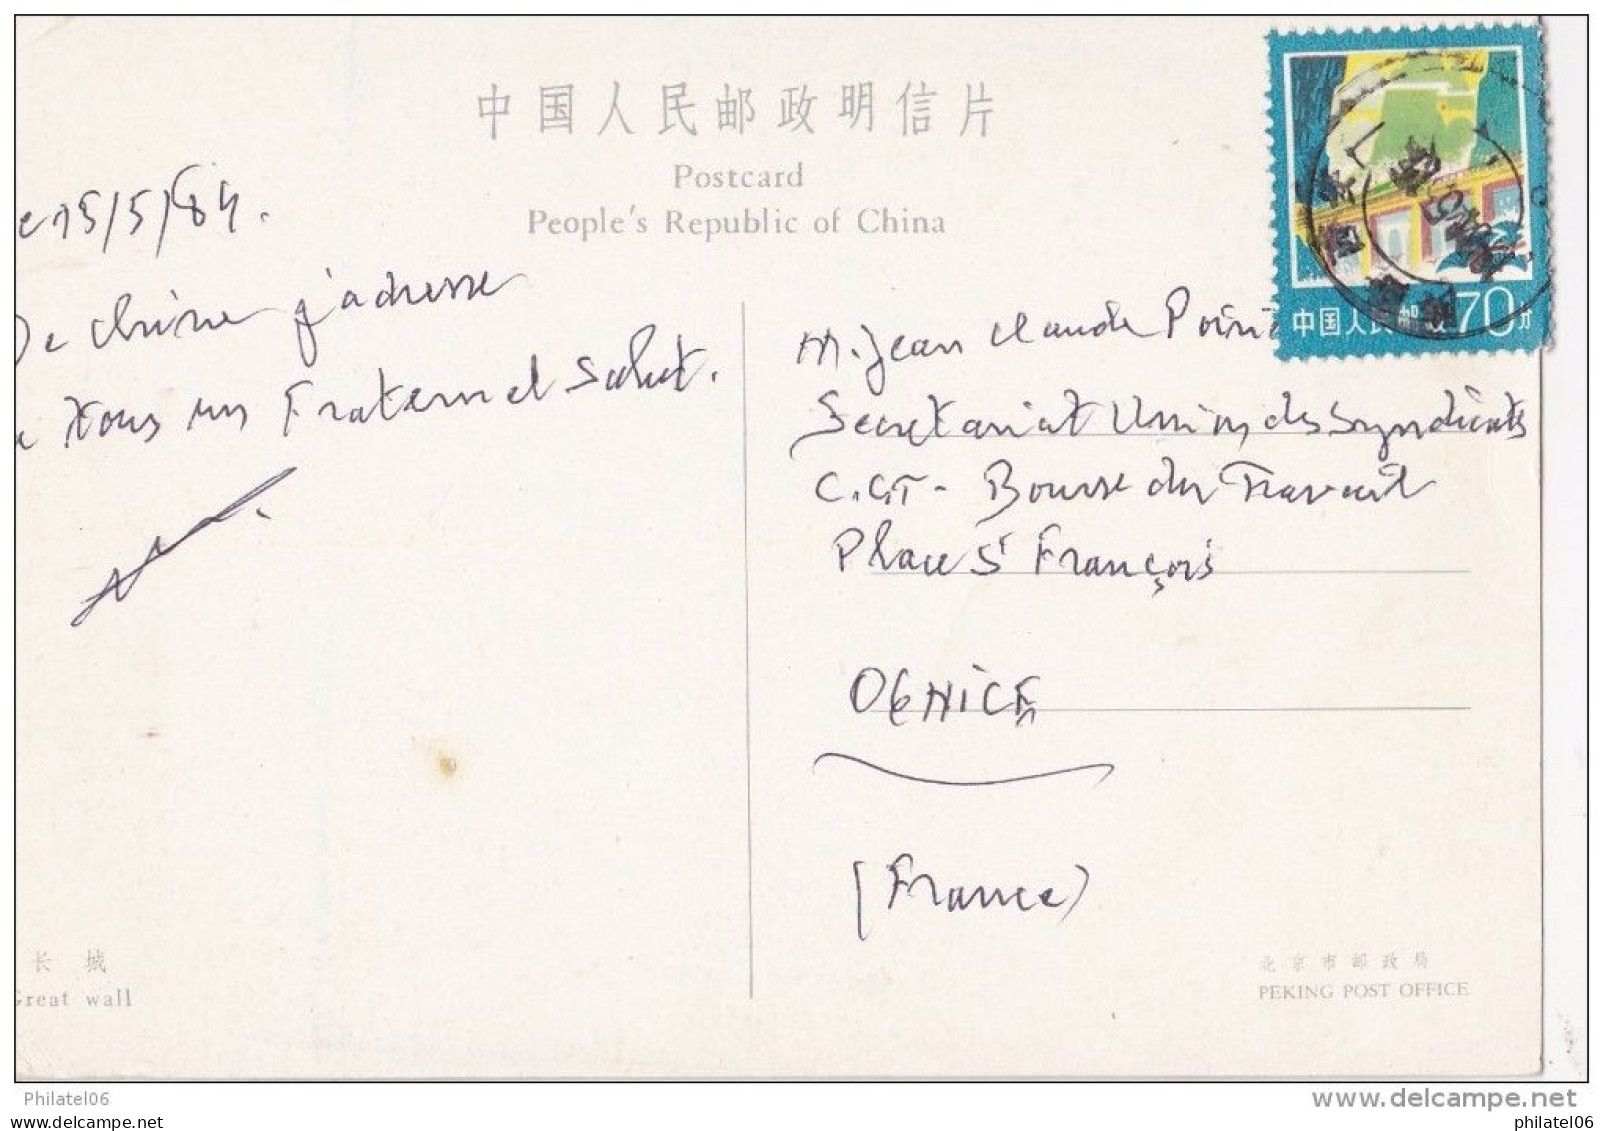 中国人民邮政明信片
Postcard
People's Republic of China
e 15/5/84.
De Chine j'adresse
a tous un Fraternel Salut.
M. Jean Claude
Secretariat Union des Syndicats
C.G.T - Bourse du Travail
Place St François
06 NICE
(France)
中国人民邮政 70分
长城
Great wall
北京市邮政局
PEKING POST OFFICE
Philatel06
www.delcampe.net
philatel06
philatel06